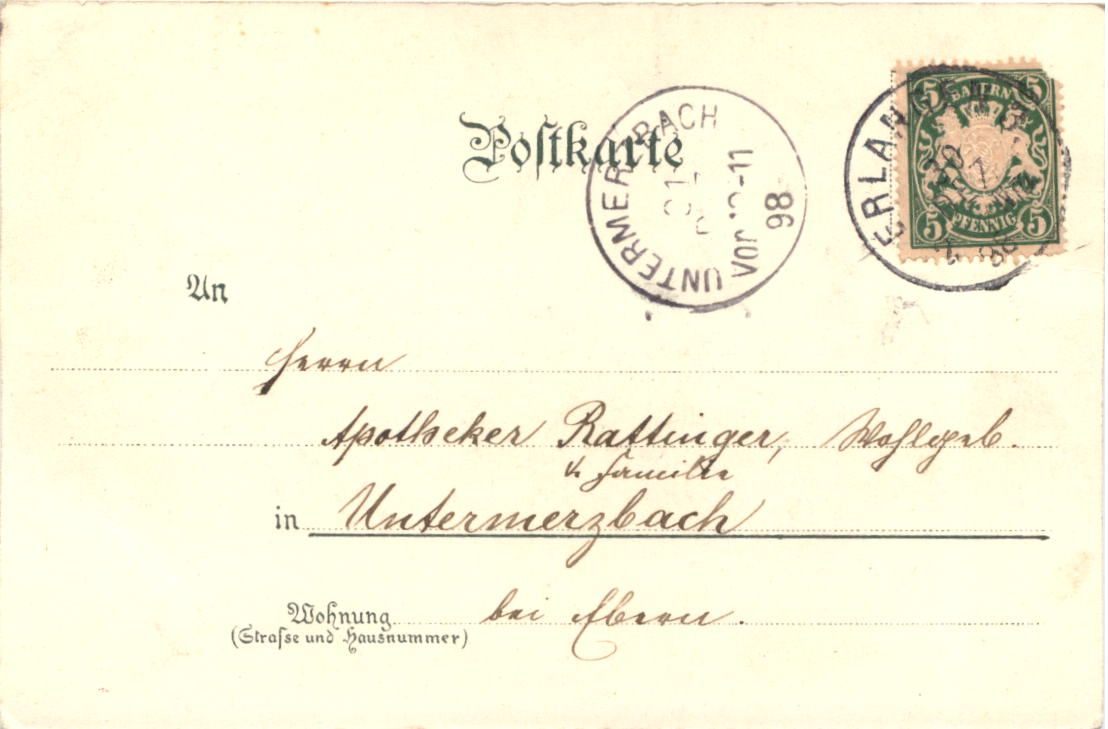 Postkarte
UNTERMERZBACH
Vor 10-11
98
BAYERN
5 5
5 5
PFENNIG
ERLANGEN
98
An
Herrn
Apotheker Rattinger, Wohlgeb.
u. Familie
in Untermerzbach
Wohnung bei Ebern.
(Straſse und Hausnummer)